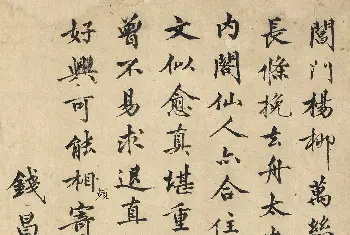 閶門楊柳萬絲
長條挽去舟太
内閣仙人亦合住
文似愈真堪重
曾不易求退直
好興可能相寄
頻
錢昌